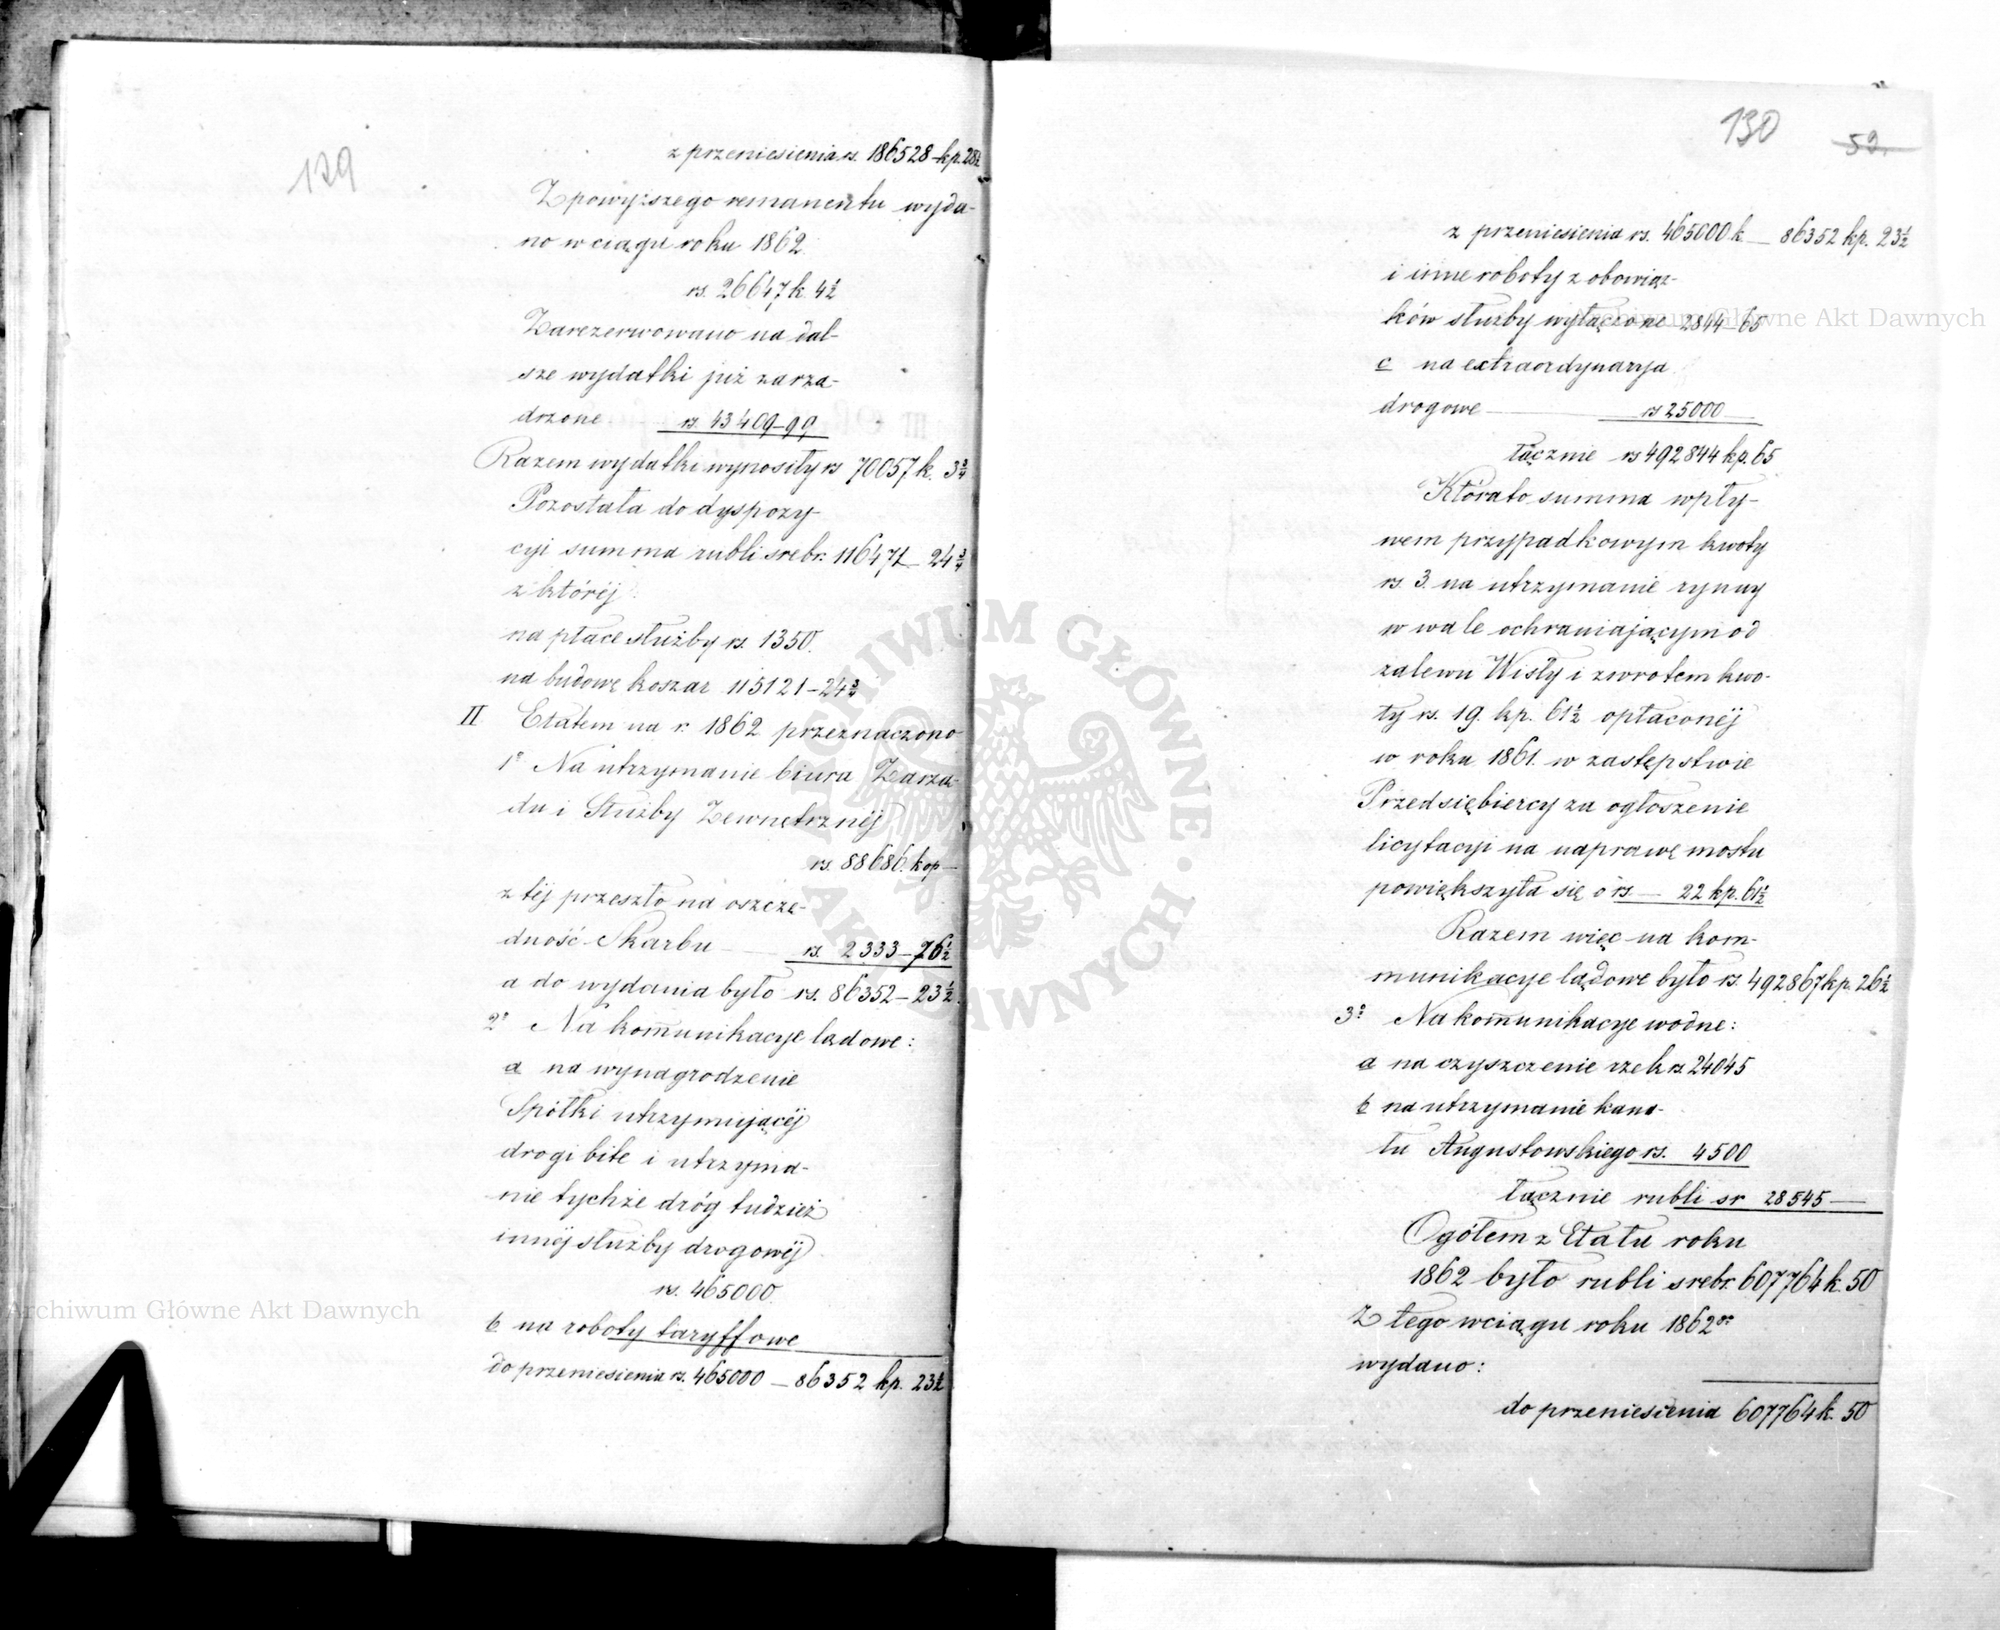 129
z przeniesienia rs. 186528 kp. 28½
Z powyższego remanentu wyda-
no w ciągu roku 1862
rs. 26647 k. 4½
Zarezerwowano na dal-
sze wydatki już zarzą-
dzone rs. 43409–99
Razem wydatki wynosiły rs 70057 k. 3¾
Pozostała do dyspozy-
cyi summa rubli srebr. 116471 – 24¾
z któréj
na płace służby rs. 1350.
na budowę koszar 115121–24¾
II Etatem na r. 1862 przeznaczono
1º Na utrzymanie biura Zarzą-
du i Służby Zewnętrznéj
rs. 88686. kop –
z téj przeszło na oszczę-
dność Skarbu rs. 2333–76½
a do wydania było rs. 86352–23½
2º Na komunikacye lądowe:
a na wynagrodzenie
Spółki utrzymującéj
drogi bite i utrzyma-
nie tychże dróg tudzież
innéj służby drogowéj
rs. 465000.
b na roboty taryffowe
do przeniesienia rs. 465000 – 86352 kp. 23½
130
52.
z przeniesienia rs. 465000 k. — 86352 kp. 23½
i inne roboty z obowiąz-
ków służby wyłączone 2844–65
c na extraordynarya
drogowe rs 25000
łącznie rs 492844 kp. 65
Którato summa wpły-
wem przypadkowym kwoty
rs. 3. na utrzymanie rynny
w wale ochraniającym od
zalewu Wisły i zwrotem kwo-
ty rs. 19. kp. 61½ opłaconéj
w roku 1861. w zastępstwie
Przedsiębiercy za ogłoszenie
licytacyi na naprawę mostu
powiększyła się o rs. — 22 kp. 61½
Razem więc na kom-
munikacye lądowe było rs. 492867 kp. 26½
3º Na komunikacye wodne:
a na czyszczenie rzek rs. 24045
b na utrzymanie kana-
łu Augustowskiego rs. 4500
łącznie rubli sr 28545 —
Ogółem z Etatu roku
1862 było rubli srebr. 607764 k. 50
Z tego w ciągu roku 1862go
wydano:
do przeniesienia 607764 k. 50
Archiwum Główne Akt Dawnych
Archiwum Główne Akt Dawnych
ARCHIWUM GŁÓWNE · AKT DAWNYCH ·